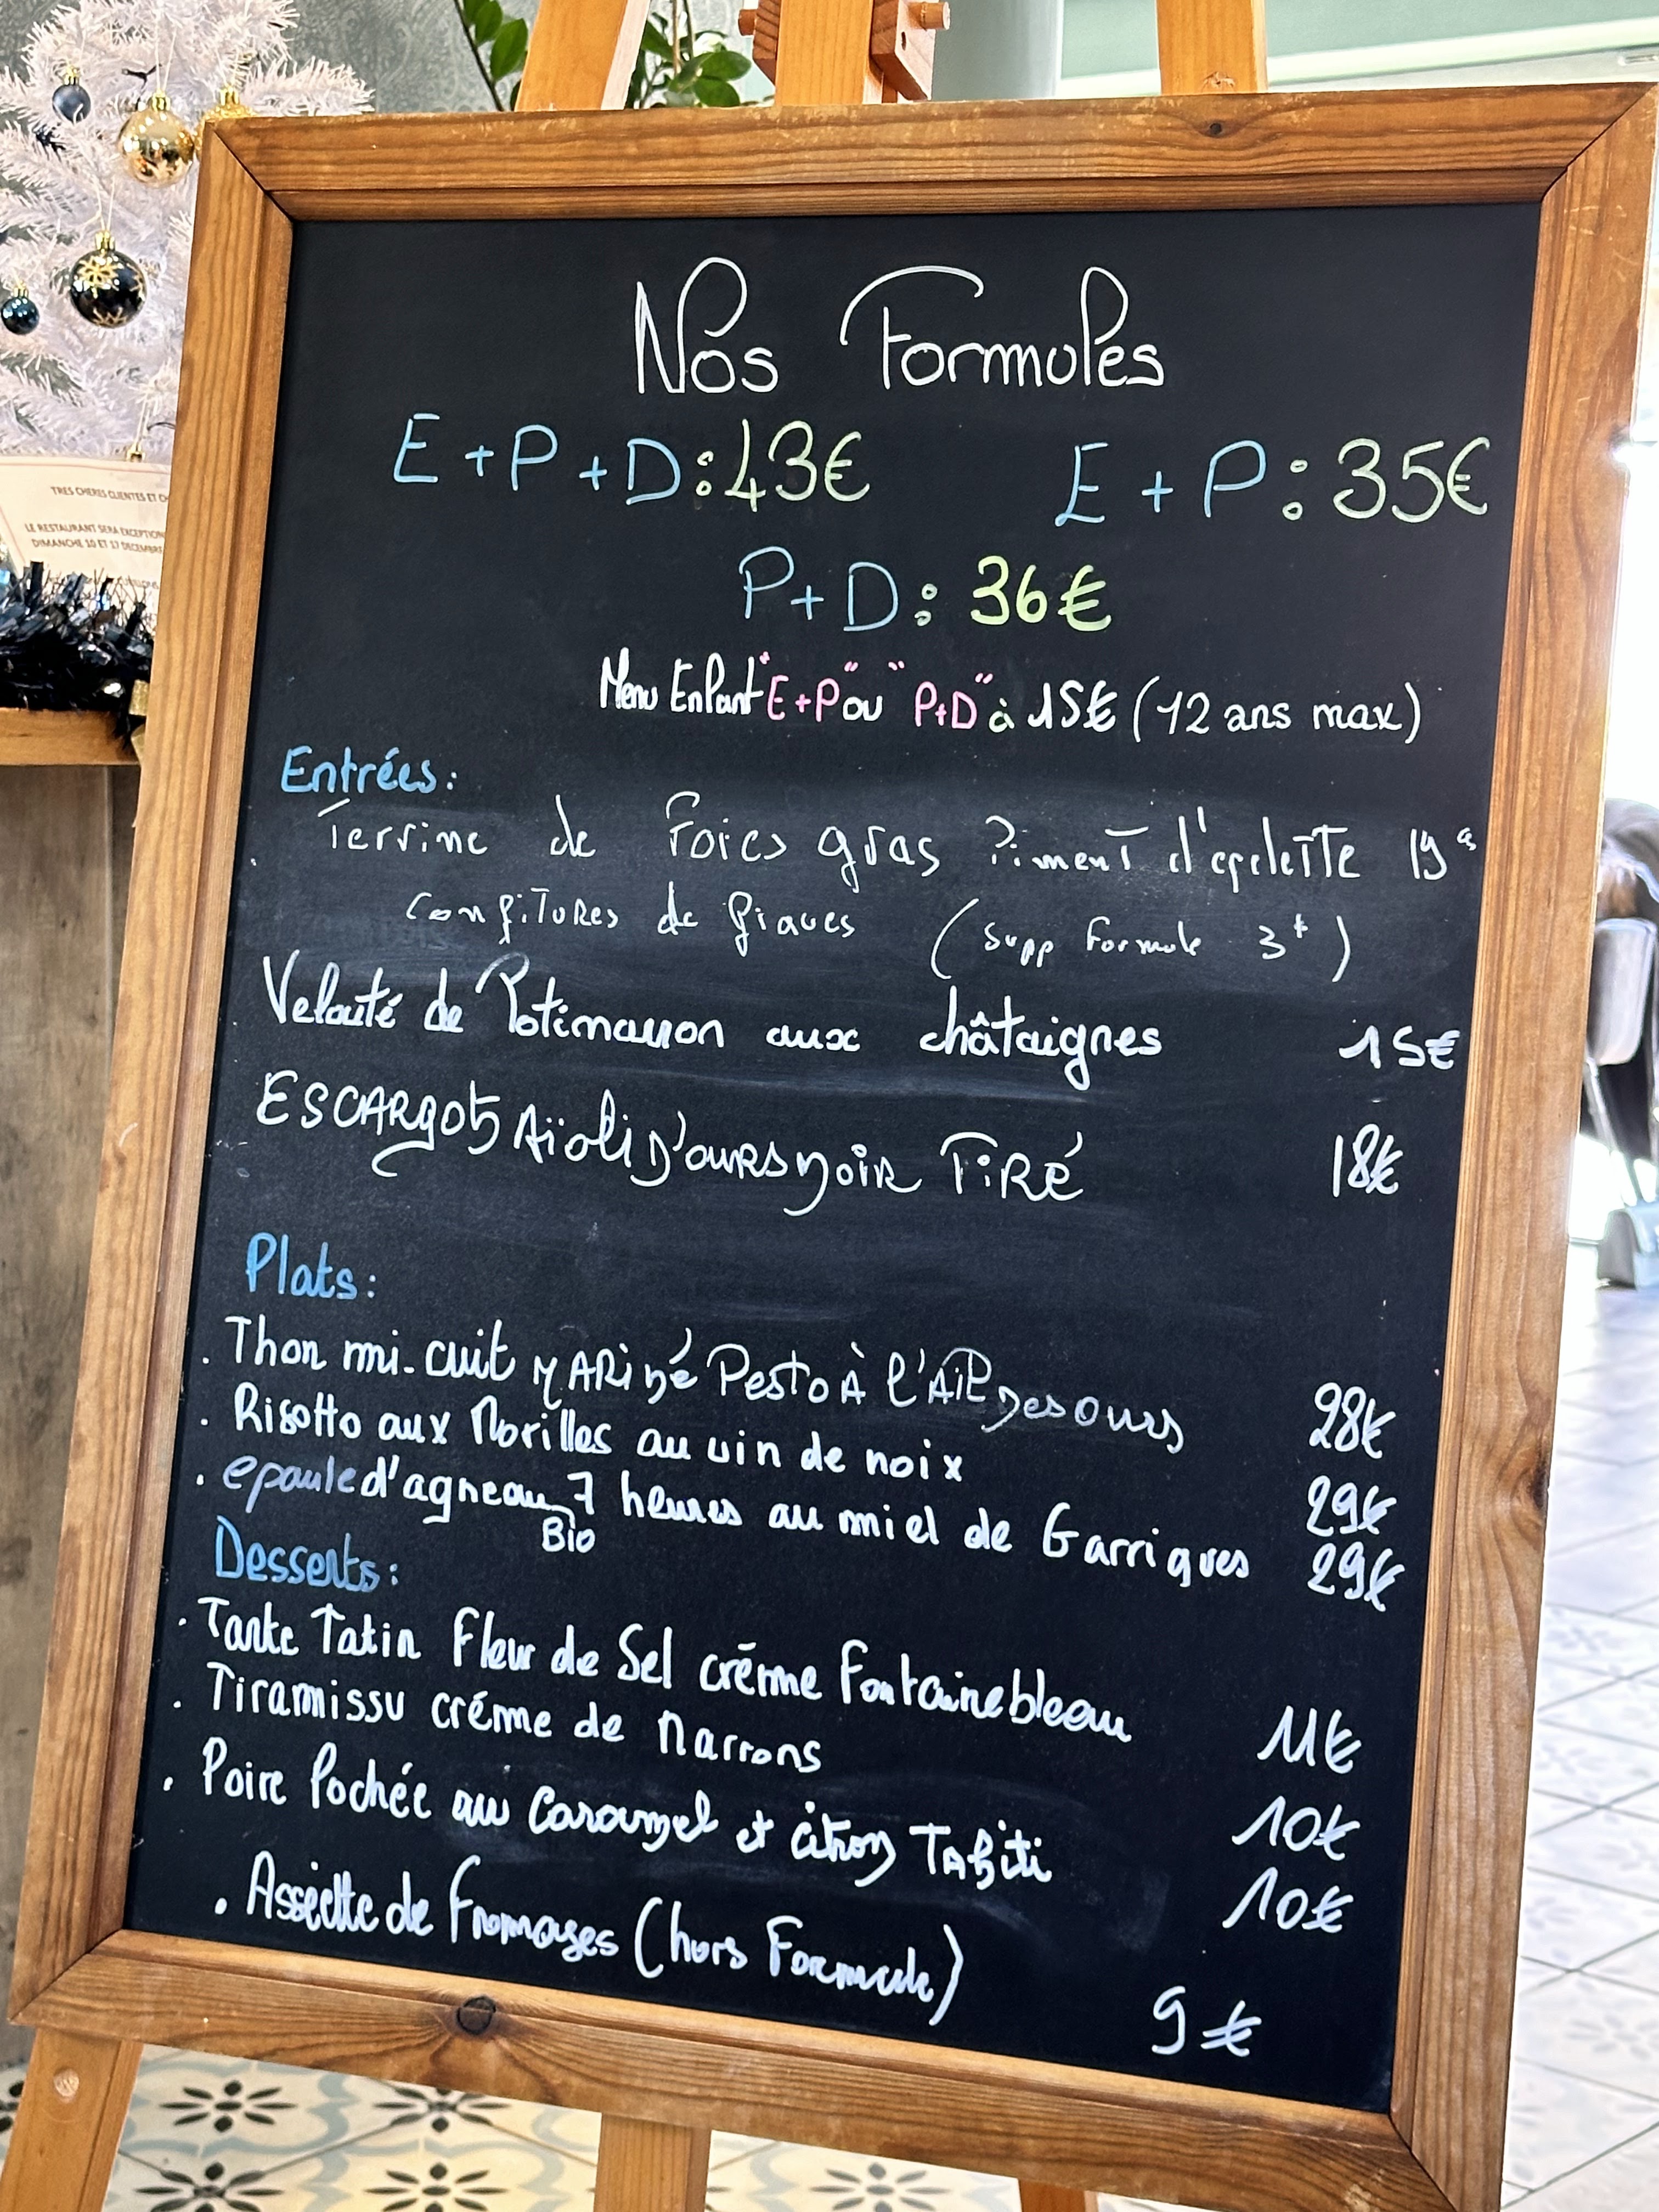 TRES CHERES CLIENTES ET C
LE RESTAURANT SERA EXCEPTION
DIMANCHE 10 ET 17 DECEMBR
Nos Formules
E+P+D:43€ E+P:35€
P+D: 36€
Menu Enfant "E+P" ou "P+D" à 15€ (12 ans max)
Entrées:
Terrine de Foies gras Piment d'espelette 19€
confitures de figaues (supp formule 3€)
Velouté de Potimarron aux châtaignes 15€
ESCARgots Aïoli D'ours noir TiRé 18€
Plats:
. Thon mi-cuit MARiné Pesto À l'AiL Des Ours 28€
. Risotto aux Morilles au vin de noix 29€
. epaule d'agneau 7 heures au miel de Garrigues 29€
Bio
Desserts:
. Tarte Tatin Fleur de Sel crème Fontainebleau 11€
. Tiramissu créme de Marrons 10€
. Poire Pochée au Caramel et citron Tahiti 10€
. Assiette de Fromages (hors Formule) 9€